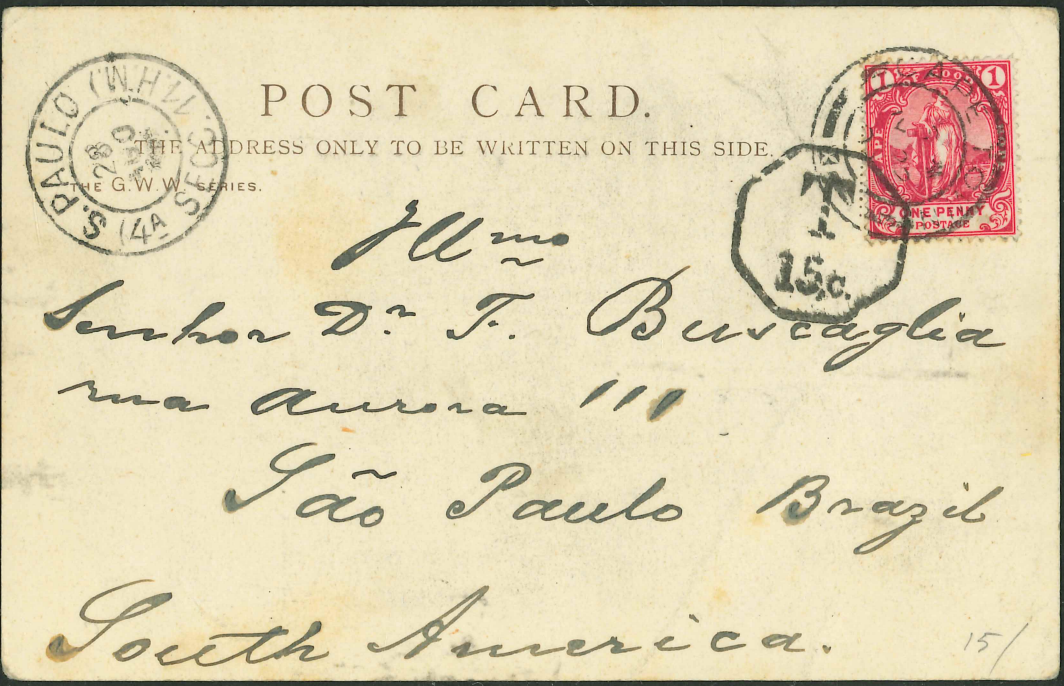 POST CARD.
THE ADDRESS ONLY TO BE WRITTEN ON THIS SIDE.
THE G.W.W. SERIES.
S. PAULO
(4A SECC.
28
1 1
ONE PENNY
POSTAGE
T
15c.
Illmo
Senhor Dr T. Buscaglia
rua Aurora 111
São Paulo Brazil
South America.
15/